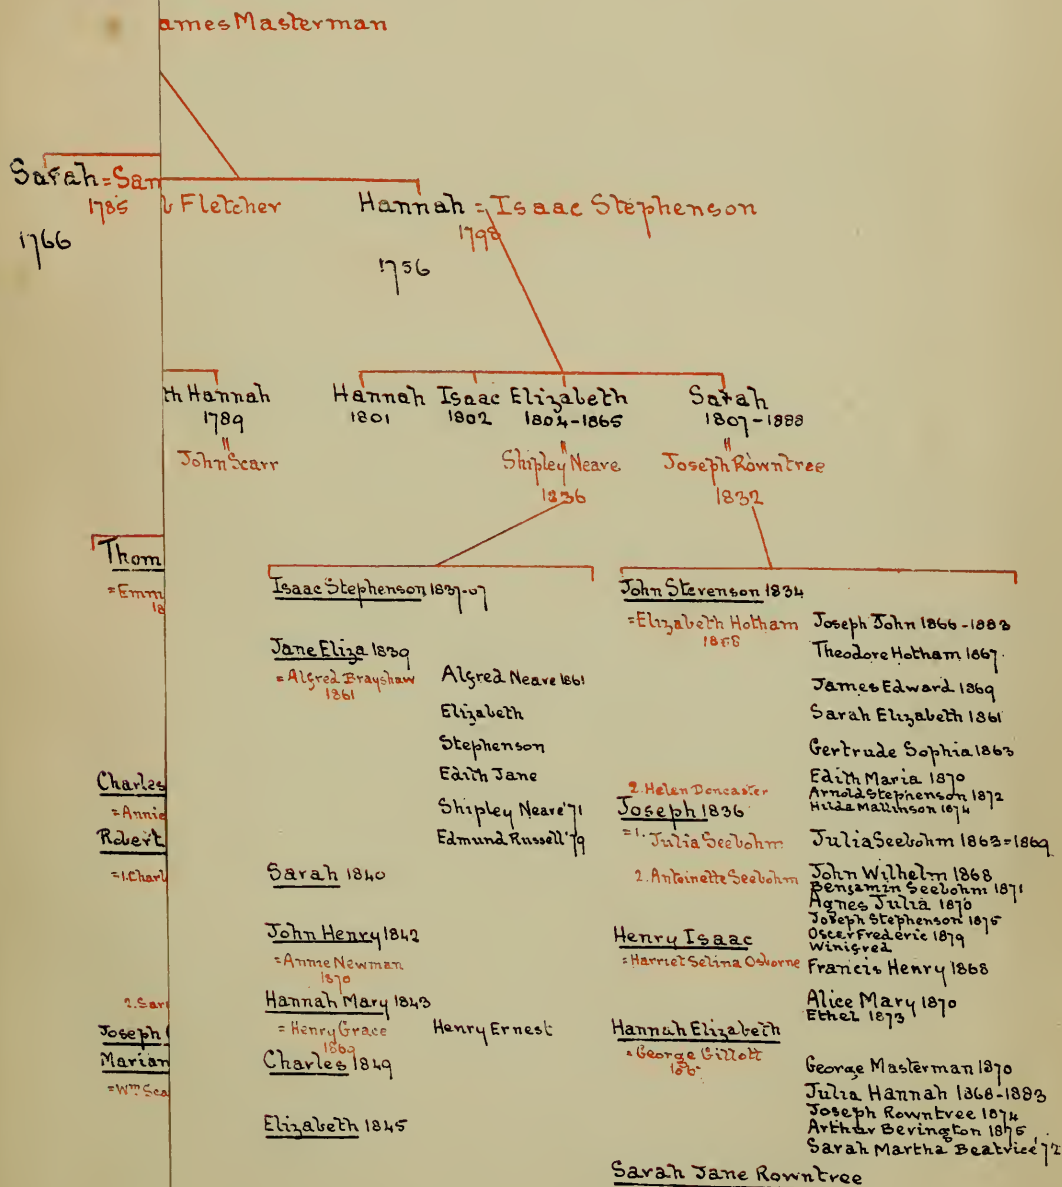 ames Masterman
Sarah = Sam
l Fletcher
1785
1766
Hannah = Isaac Stephenson
1798
1756
th Hannah
1789
"
John Scarr
Hannah
1801
Isaac
1802
Elizabeth
1804-1865
"
Shipley Neave
1836
Sarah
1807-1888
"
Joseph Rowntree
1832
Thom
=Emm
18
Charles
=Annie
Robert
=1.Charl
2.Sar
Joseph
Marian
=Wm Sca
Isaac Stephenson 1837-07
Jane Eliza 1839
=Alfred Brayshaw
1861
Alfred Neave 1861
Elizabeth
Stephenson
Edith Jane
Shipley Neave '71
Edmund Russell '79
Sarah 1840
John Henry 1842
=Annie Newman
1870
Hannah Mary 1843
=Henry Grace
1869
Henry Ernest
Charles 1849
Elizabeth 1845
John Stevenson 1834
=Elizabeth Hotham
1858
Joseph John 1866-1883
Theodore Hotham 1867
James Edward 1869
Sarah Elizabeth 1861
Gertrude Sophia 1863
Edith Maria 1870
Arnold Stephenson 1872
Hilda Mallinson 1874
2.Helen Doncaster
Joseph 1836
=1.Julia Seebohm
Julia Seebohm 1863=1869
2.Antoinette Seebohm
John Wilhelm 1868
Benjamin Seebohm 1871
Agnes Julia 1870
Joseph Stephenson 1875
Oscer Frederic 1879
Winifred
Henry Isaac
=Harriet Selina Osborne
Francis Henry 1868
Alice Mary 1870
Ethel 1873
Hannah Elizabeth
=George Gillott
George Masterman 1870
Julia Hannah 1868-1883
Joseph Rowntree 1874
Arthur Bevington 1875
Sarah Martha Beatrice '72
Sarah Jane Rowntree